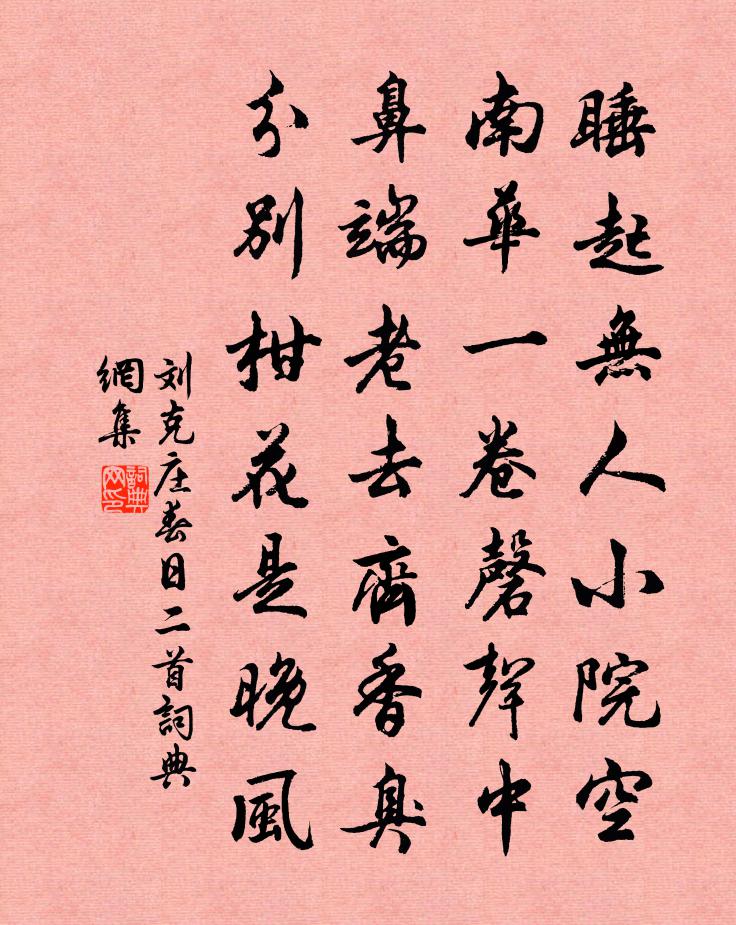 睡起無人小院空
南華一卷磬聲中
鼻端老去齊香臭
分別柑花是晚風
刘克庄春日二首詞典
網集
詞典
网印